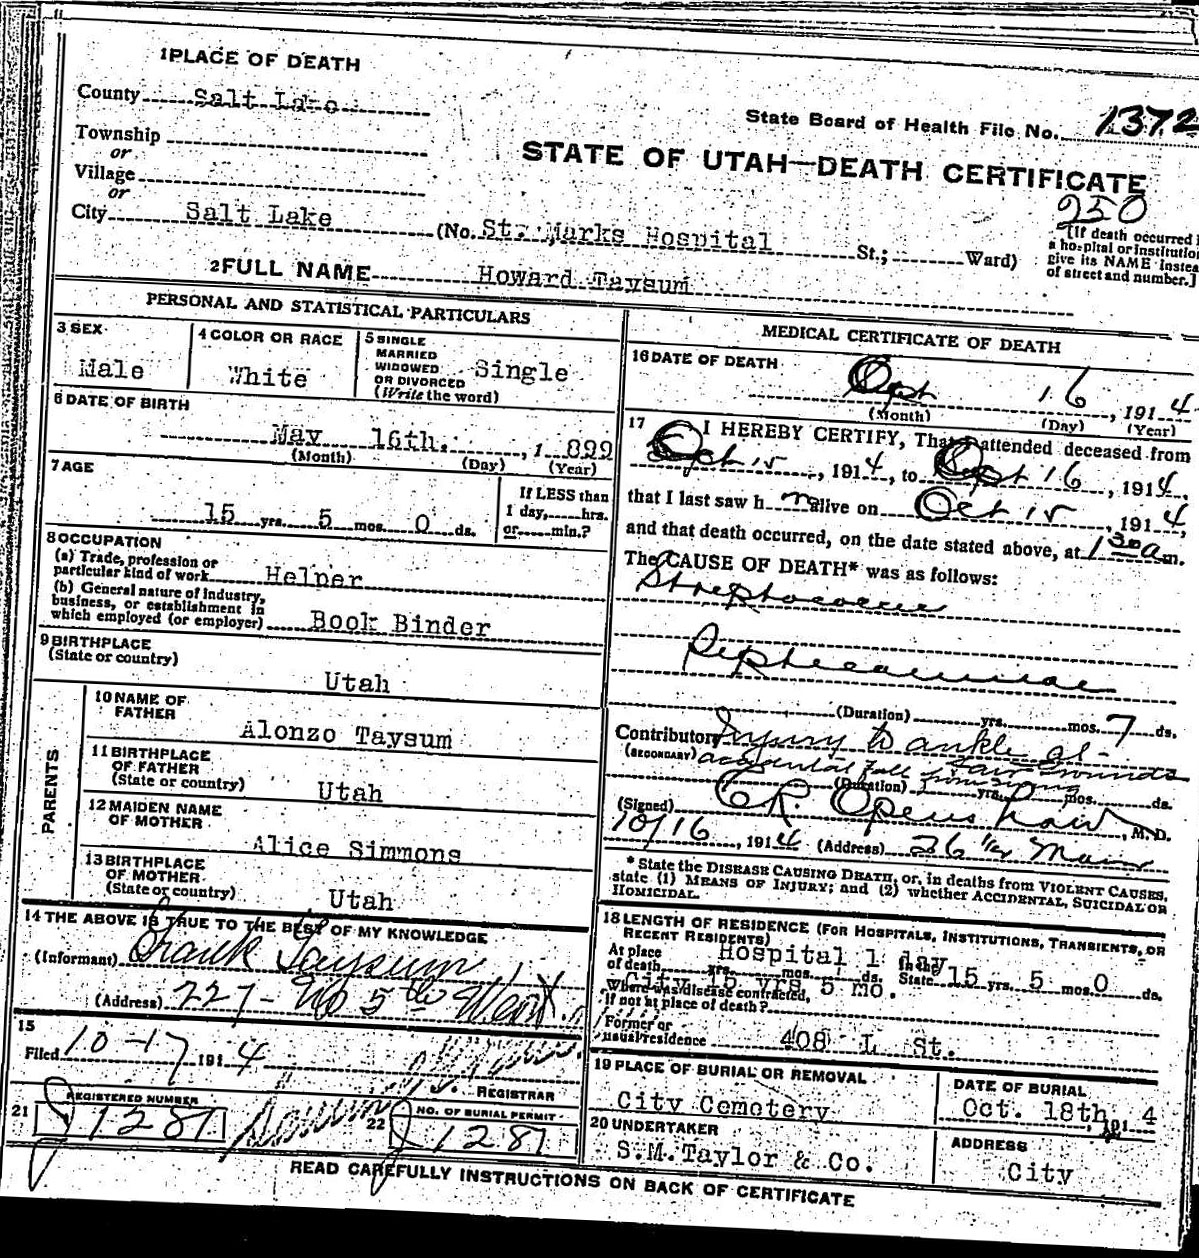 1 PLACE OF DEATH
County Salt Lake
State Board of Health File No. 1372
Township
or
STATE OF UTAH—DEATH CERTIFICATE
Village
or
250
City Salt Lake (No. St. Marks Hospital St.; Ward)
[If death occurred in a hospital or institution give its NAME instead of street and number.]
2 FULL NAME Howard Taysum
PERSONAL AND STATISTICAL PARTICULARS
3 SEX
Male
4 COLOR OR RACE
White
5 SINGLE
MARRIED
WIDOWED
OR DIVORCED
(Write the word)
Single
6 DATE OF BIRTH
May 16th, 1 899
(Month) (Day) (Year)
7 AGE
15 yrs. 5 mos. 0 ds.
If LESS than
1 day, hrs.
or min.?
8 OCCUPATION
(a) Trade, profession or
particular kind of work Helper
(b) General nature of industry,
business, or establishment in
which employed (or employer) Book Binder
9 BIRTHPLACE
(State or country)
Utah
PARENTS
10 NAME OF
FATHER
Alonzo Taysum
11 BIRTHPLACE
OF FATHER
(State or country) Utah
12 MAIDEN NAME
OF MOTHER
Alice Simmons
13 BIRTHPLACE
OF MOTHER
(State or country) Utah
14 THE ABOVE IS TRUE TO THE BEST OF MY KNOWLEDGE
(Informant) Frank Taysum
(Address) 227 - No 5th West
15
Filed 10-17 1914
REGISTRAR
21 REGISTERED NUMBER
1281
22 NO. OF BURIAL PERMIT
1281
MEDICAL CERTIFICATE OF DEATH
16 DATE OF DEATH
Oct 16, 1914
(Month) (Day) (Year)
17 I HEREBY CERTIFY, That I attended deceased from
Oct 15, 1914, to Oct 16, 1914,
that I last saw h m alive on Oct 15, 1914,
and that death occurred, on the date stated above, at 1 30 a m.
The CAUSE OF DEATH* was as follows:
Streptococcus
Septicaemiae
(Duration) yrs. mos. 7 ds.
Contributory Injury to ankle at -
(SECONDARY) accidental fall from Fair Grounds
(Duration) yrs. mos. ds.
(Signed) C R. Openshaw, M.D.
10/16, 1914 (Address) 26 1/2 Main
* State the DISEASE CAUSING DEATH, or, in deaths from VIOLENT CAUSES,
state (1) MEANS OF INJURY; and (2) whether ACCIDENTAL, SUICIDAL OR
HOMICIDAL.
18 LENGTH OF RESIDENCE (FOR HOSPITALS, INSTITUTIONS, TRANSIENTS, OR
RECENT RESIDENTS)
Hospital 1 day
At place
of death yrs. mos. ds. In the State 15 yrs. 5 mos. 0 ds.
City 15 yrs 5 mo.
Where was disease contracted,
if not at place of death?
Former or
usual residence 408 L St.
19 PLACE OF BURIAL OR REMOVAL
City Cemetery
DATE OF BURIAL
Oct. 18th, 191 4
20 UNDERTAKER
S.M.Taylor & Co.
ADDRESS
City
READ CAREFULLY INSTRUCTIONS ON BACK OF CERTIFICATE